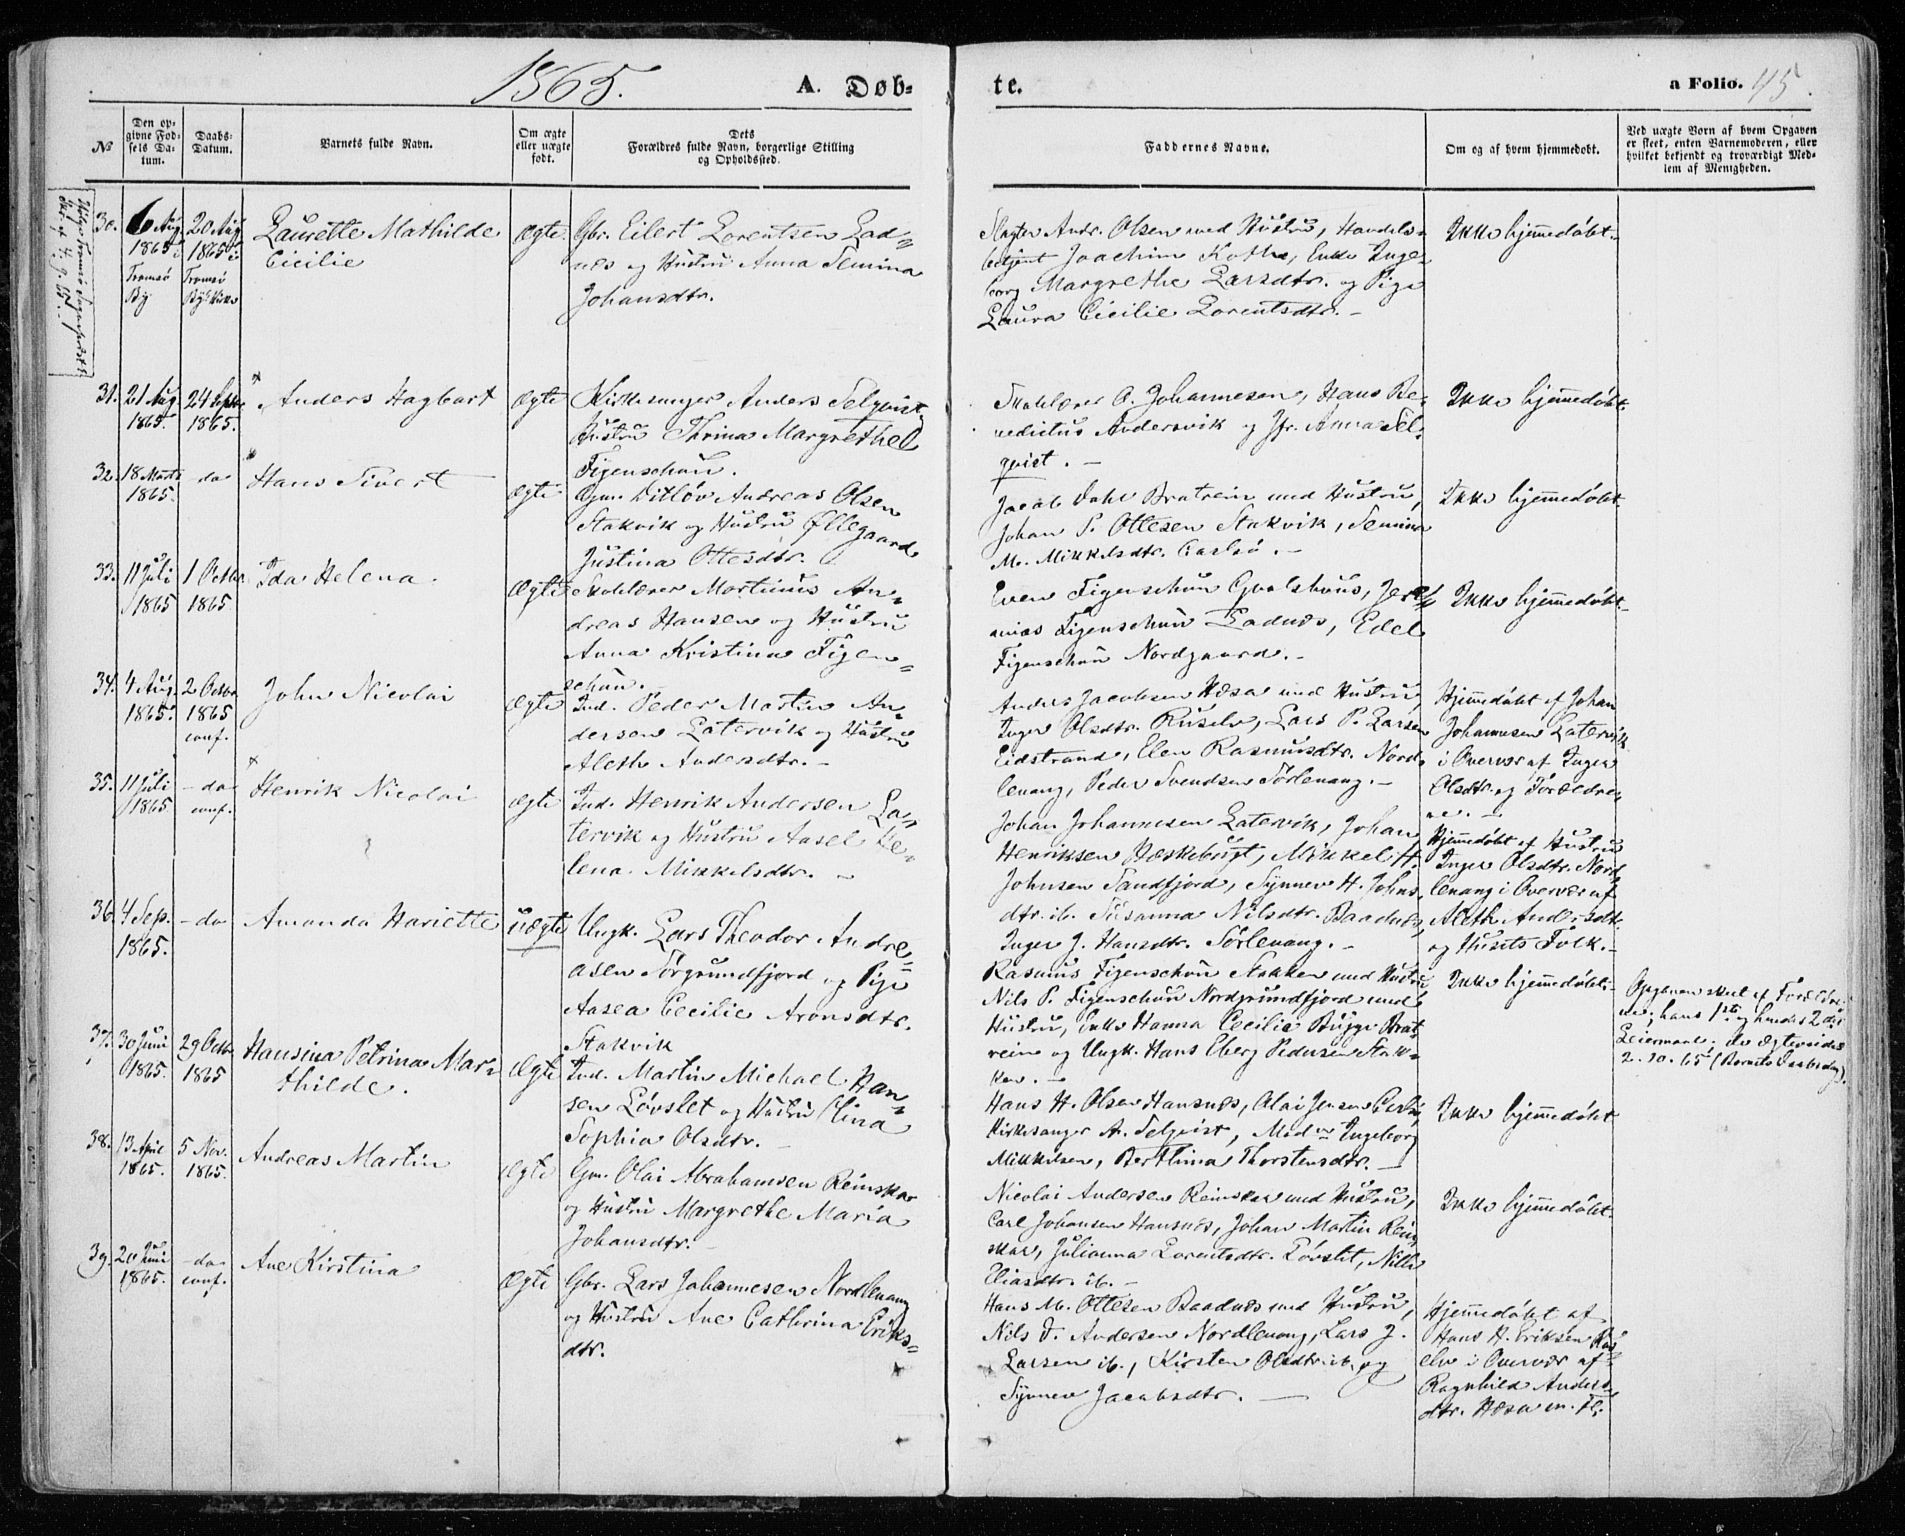 1865.
A. Døb-
te.
a Folio. 45.
№
Den op-
givne Fød-
sels Da-
tum.
Daabs-
Datum.
Barnets fulde Navn.
Om ægte
eller uægte
født.
Dets
Forældres fulde Navn, borgerlige Stilling
og Opholdssted.
Faddernes Navne.
Om og af hvem hjemmedøbt.
Ved uægte Børn af hvem Opgaven
er skeet, enten Barnemoderen, eller
hvilket bekjendt og troværdigt Med-
lem af Menigheden.
30.
6 Aug
1865 i
Tromsø
By
20 Aug
1865 i
Tromsø
Laurette Mathilde
Cicilie
Ægte
Gbr. Eilert Lorentsen Lad-
nes og Hustru Anna Semina
Johansdtr.
Andr. Olsen med Hustru, Handels-
betjent Joachim Koth, Enke Inge-
borg Margrethe Larsdtr. og Pige
Laura Cicilie Lorentsdtr. -
Ikke hjemmedøbt.
31.
21 Aug
1865.
24 Septr
1865.
Anders Hagbart
Ægte
Kirkesanger Anders Selqvist,
Hustru Thrina Margrethe
Figenschou.
Skolelærer O. Johannesen, Hans Be-
nedictus Andersvik og Jfr. Anna Sel-
qvist. -
Ikke hjemmedøbt.
32.
18 Marts
1865.
-do
Hans Sivert
Ægte
Gm. Ditlöv Andreas Olsen
Stakvik og Hustru Øllegaard
Justina Ottesdtr.
Jacob Dahl Bratrein med Hustru,
Johan P. Ottesen Stakvik, Semina
M. Mikkelsdtr. Carlsø. -
Ikke hjemmedøbt.
33.
11 Juli
1865
1 Octbr
1865
Ida Helena.
Ægte
Skolelærer Martinus An-
dreas Hansen og Hustru
Anna Kristina Figen-
schou.
Even Figenschou Hvalshaus, Jere-
mias Figenschou Ladnes, Edel
Figenschou Nordgaard. -
Ikke hjemmedøbt.
34.
4 Aug.
1865.
2 Octbr
1865
conf.
John Nicolai
Ægte
Ind. Peder Martin An-
dersen Latervik og Hustru
Aleth Andersdtr. -
Anders Jacobsen Hæsa med Hustru,
Inger Olsdtr. Ruselv, Lars P. Larsen
Eidstrand, Elen Rasmusdtr. Nord-
lenang, Peder Svendsen Sörlenang. -
Hjemmedøbt af Johan
Johannesen Latervik
i Overvær af Inger
Olsdtr. og Forældre-
ne. -
35.
11 Juli
1865
-do
conf.
Henrik Nicolai
Ægte
Ind. Henrik Andersen La-
tervik og Hustru Aasel He-
lena Mikkelsdtr. -
Johan Johannesen Latervik, Johan
Henriksen Hæskebugt, Mikkel H.
Johnsen Sandfjord, Synnev H. Johns-
dtr. ib. Susanna Nilsdtr. Baadnes,
Inger J. Hansdtr. Sörlenang. -
Hjemmedøbt af Hustru
Inger Olsdtr. Nord-
lenang i Overvær af
Aleth Andersdtr.
og Husets Folk. -
36.
4 Sep.
1865.
-do
Amanda Hariette
uægte
Ungk. Lars Theodor Andre-
asen Sörgrundfjord og Pige
Aasea Cecilie Aronsdtr.
Stakvik
Rasmus Figenschou Stakken med Hustru
Nils P. Figenschou Nordgrundfjord med
Hustru, Enke Hanna Cecilie Bugge Brat-
rein og Ungk. Hans Eberg Pedersen Stak-
ken. -
Ikke hjemmedøbt.
Opgaven skeet af Forældre-
ne; hans 1ste og hendes 2det
Leiermaal; de ægteviedes
2.10.65 (Barnets Daabsdag).
37.
30 Juni
1865.
29 Octbr
1865
Hansina Petrina Mar-
thilde.
Ægte
Ind. Martin Michael Han-
sen Lövslet og Hustru Elina
Sophia Olsdtr. -
Hans H. Olsen Hansnes, Olai Jensen Carlsø,
Kirkesanger A. Selqvist, Madm Ingeborg
Mikkelsen, Berthina Thorstensdtr. -
Ikke hjemmedøbt
38.
13 April
1865.
5 Nov.
1865.
Andreas Martin
Ægte
Gm. Olai Abrahamsen Reinskar
og Hustru Margrethe Maria
Johansdtr. -
Nicolai Andersen Reinskar med Hustru,
Carl Johansen Hansnes, Johan Martin Rein-
skar, Julianna Lorentsdtr. Lövslet, Nille
Eliasdtr. ib. -
Ikke hjemmedøbt.
39.
20 Juni
1865.
-do
conf.
Ane Kirstina
Ægte
Gbr. Lars Johannesen Nordlenang
og Hustru Ane Cathrina Eriks-
dtr.
Hans M. Ottesen Baadnes med Hustru,
Nils D. Andersen Nordlenang, Lars J.
Larsen ib., Kirsten Olsdtr. ib. og
Synnev Jacobsdtr. -
Hjemmedøbt af
Hans H. Eriksen Rus-
elv i Overvær af
Ragnhild Anders-
dtr. Hæsa m. Fl.